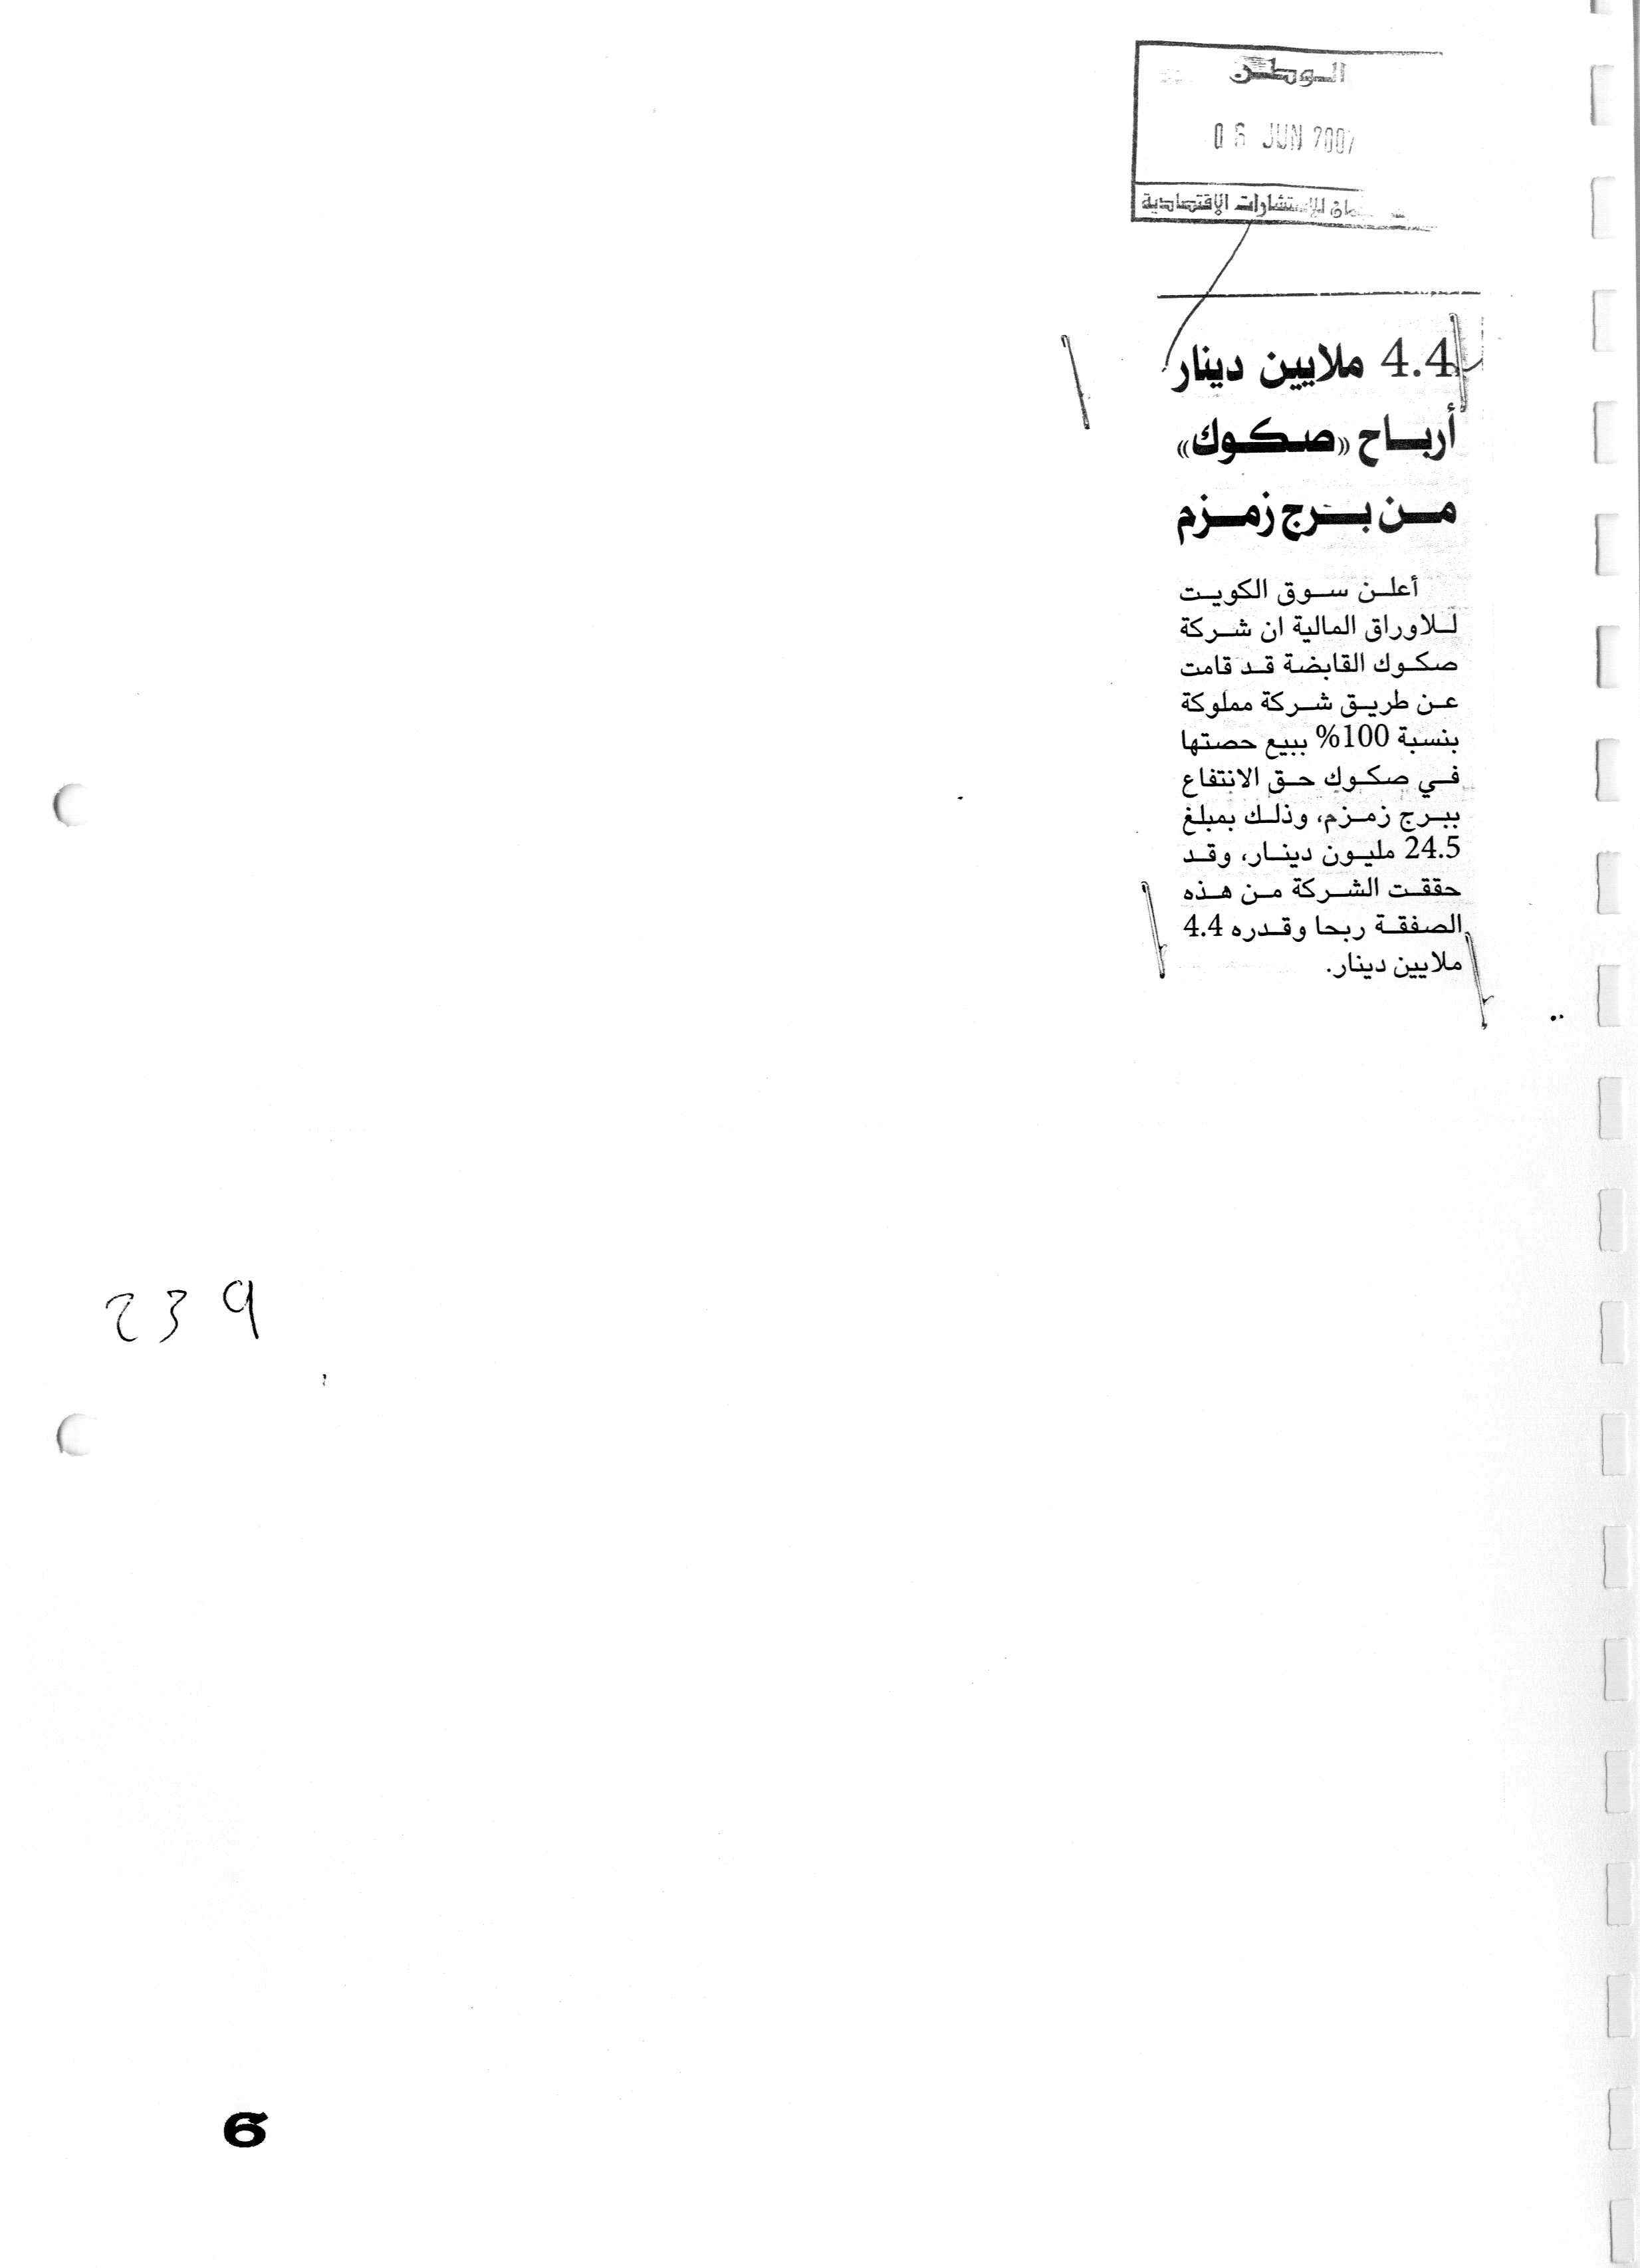 الوطن
06 JUN 2007
للإستشارات الإقتصادية
4.4 ملايين دينار
أرباح «صكوك»
من برج زمزم
أعلن سوق الكويت
للاوراق المالية ان شركة
صكوك القابضة قد قامت
عن طريق شركة مملوكة
بنسبة 100% ببيع حصتها
في صكوك حق الانتفاع
ببرج زمزم، وذلك بمبلغ
24.5 مليون دينار، وقد
حققت الشركة من هذه
الصفقة ربحا وقدره 4.4
ملايين دينار.
239
6